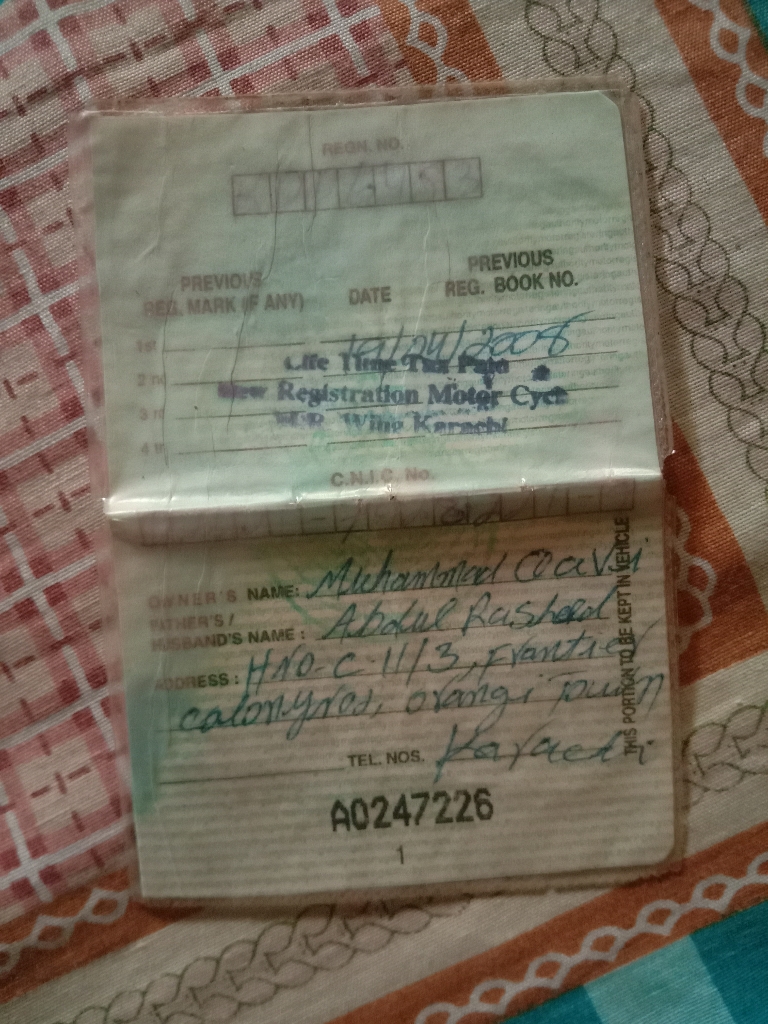 REGN. NO.
PREVIOUS REG. MARK (IF ANY)
DATE
PREVIOUS REG. BOOK NO.
1st 19/04/2008
Life Time Tax Paid
2nd
New Registration Motor Cycle
3rd
M.R. Wing Karachi
4th
C.N.I.C. No.
OWNER'S NAME: Muhammad
FATHER'S /
HUSBAND'S NAME: Abdul Rasheed
ADDRESS: HNO-C-11/3, Frantier
calony no1, orangi Town
TEL. NOS. Karachi
A0247226
1
THIS PORTION TO BE KEPT IN VEHICLE